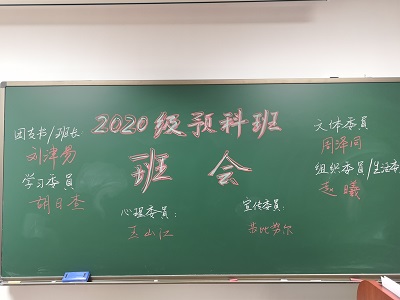 2020级预科班
班会
团支书/班长
刘津易
学习委员:
胡日查
心理委员:
玉山江
宣传委员:
吉比努尔
文体委员
周泽同
组织委员/生活委
赵曦